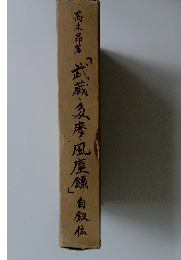 高木昴著
「武蔵・多摩・風塵録」自叙伝